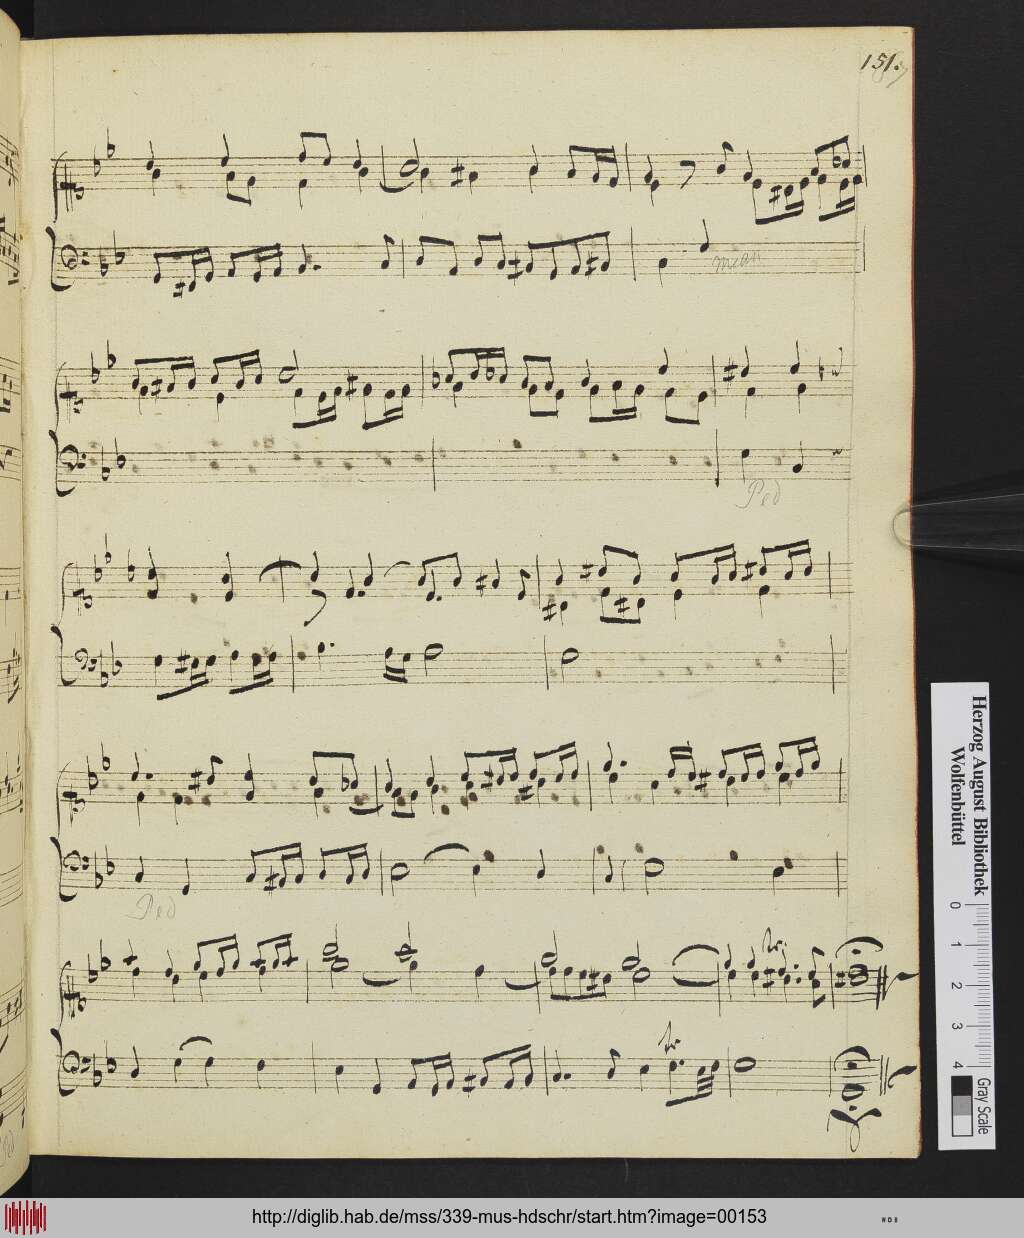 151.
man
Ped
Ped
tr
tr
Herzog August Bibliothek
Wolfenbüttel
0 1 2 3 4
Gray Scale
http://diglib.hab.de/mss/339-mus-hdschr/start.htm?image=00153
WDB